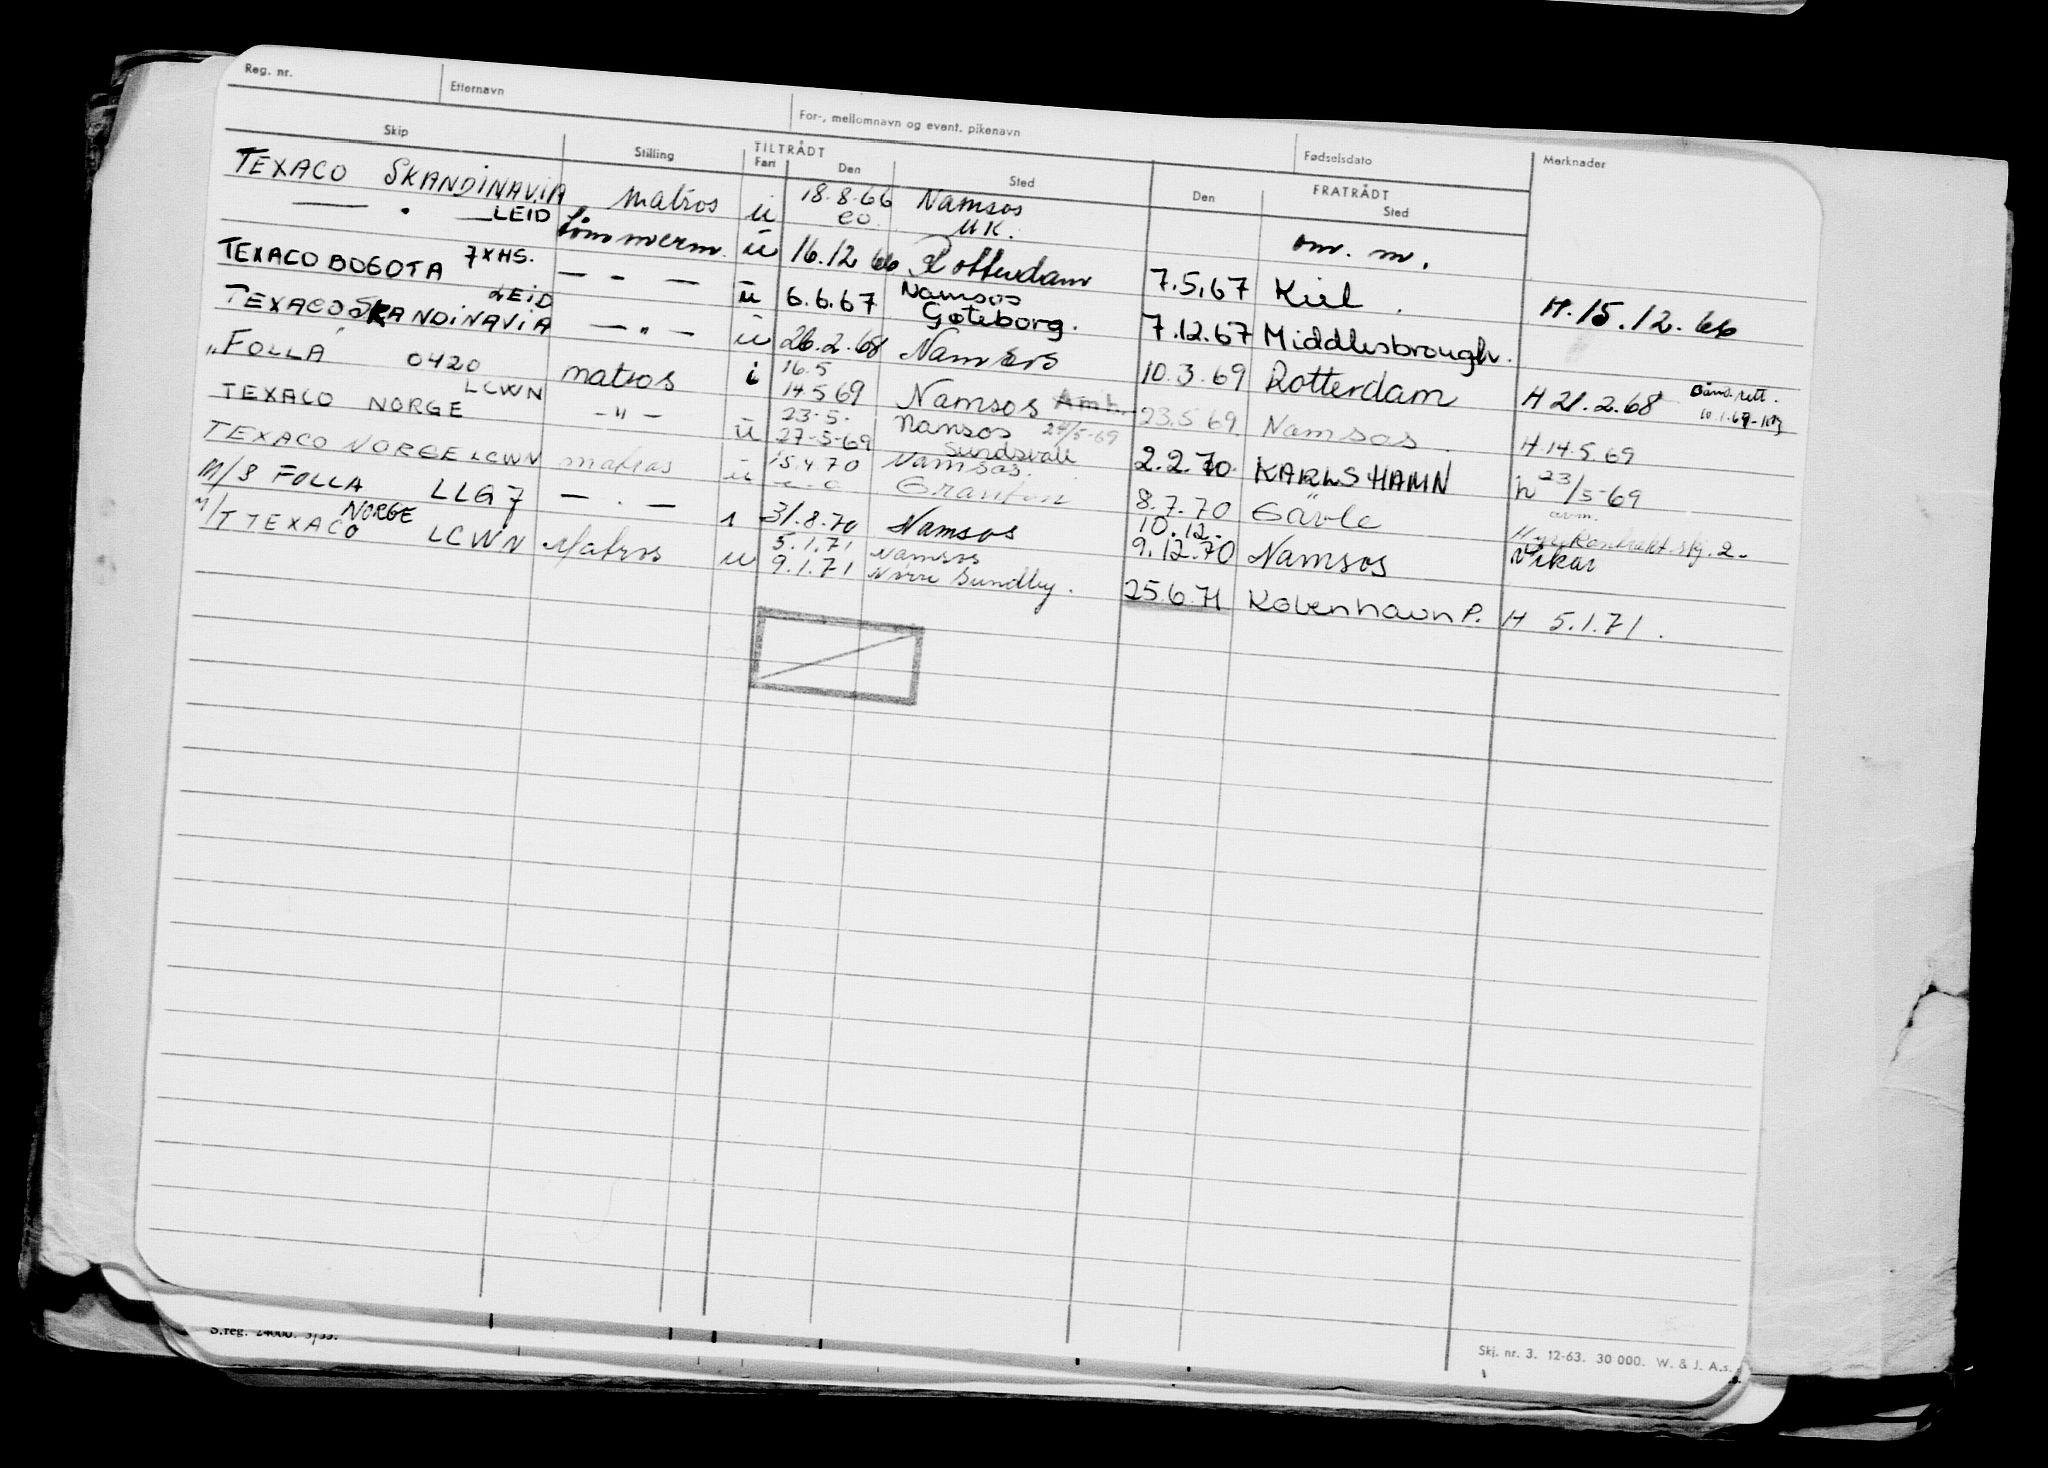 Reg. nr. Etternavn For-, mellomnavn og event. pikenavn Fødselsdato Merknader
Skip Stilling TILTRÅDT FRATRÅDT
Fart Den Sted Den Sted
TEXACO SKANDINAVIA matros u 18.8.66 Namsos
eo. UK. om. m.
— " — LEID Tømmerm. u 16.12.66 Rotterdam 7.5.67 Kiel. H. 15.12.66
TEXACO BOGOTA 7XHS. — " — u 6.6.67 Namsos
Gøteborg. 7.12.67 Middlesbrough.
TEXACO SKANDINAVIA LEID — " — u 26.2.68 Namsos 10.3.69 Rotterdam H 21.2.68
"FOLLA" 0420 matros i 16.5
14.5.69 Namsos 23.5.69. Namsos. H 14.5.69
TEXACO NORGE LCWN — " — u 23.5.
27-5-69 Namsos 27/5-69
Sundsvall 2.2.70. KARLSHAMN h 23/5-69
TEXACO NORGE LCWN matros u 15.4.70 Namsos.
Granton 8.7.70 Gävle
M/S FOLLA LLG7 — " — 1 31.8.70 Namsos 10.12.
9.12.70 Namsos Vikar
M/T TEXACO NORGE LCWN Matros u 5.1.71 Namsos
9.1.71 Nørre Sundby. 25.6.71 København P. H 5.1.71.
S.reg. 24000. 3/55.
Skj. nr. 3. 12-63. 30 000. W. & J. A.s.